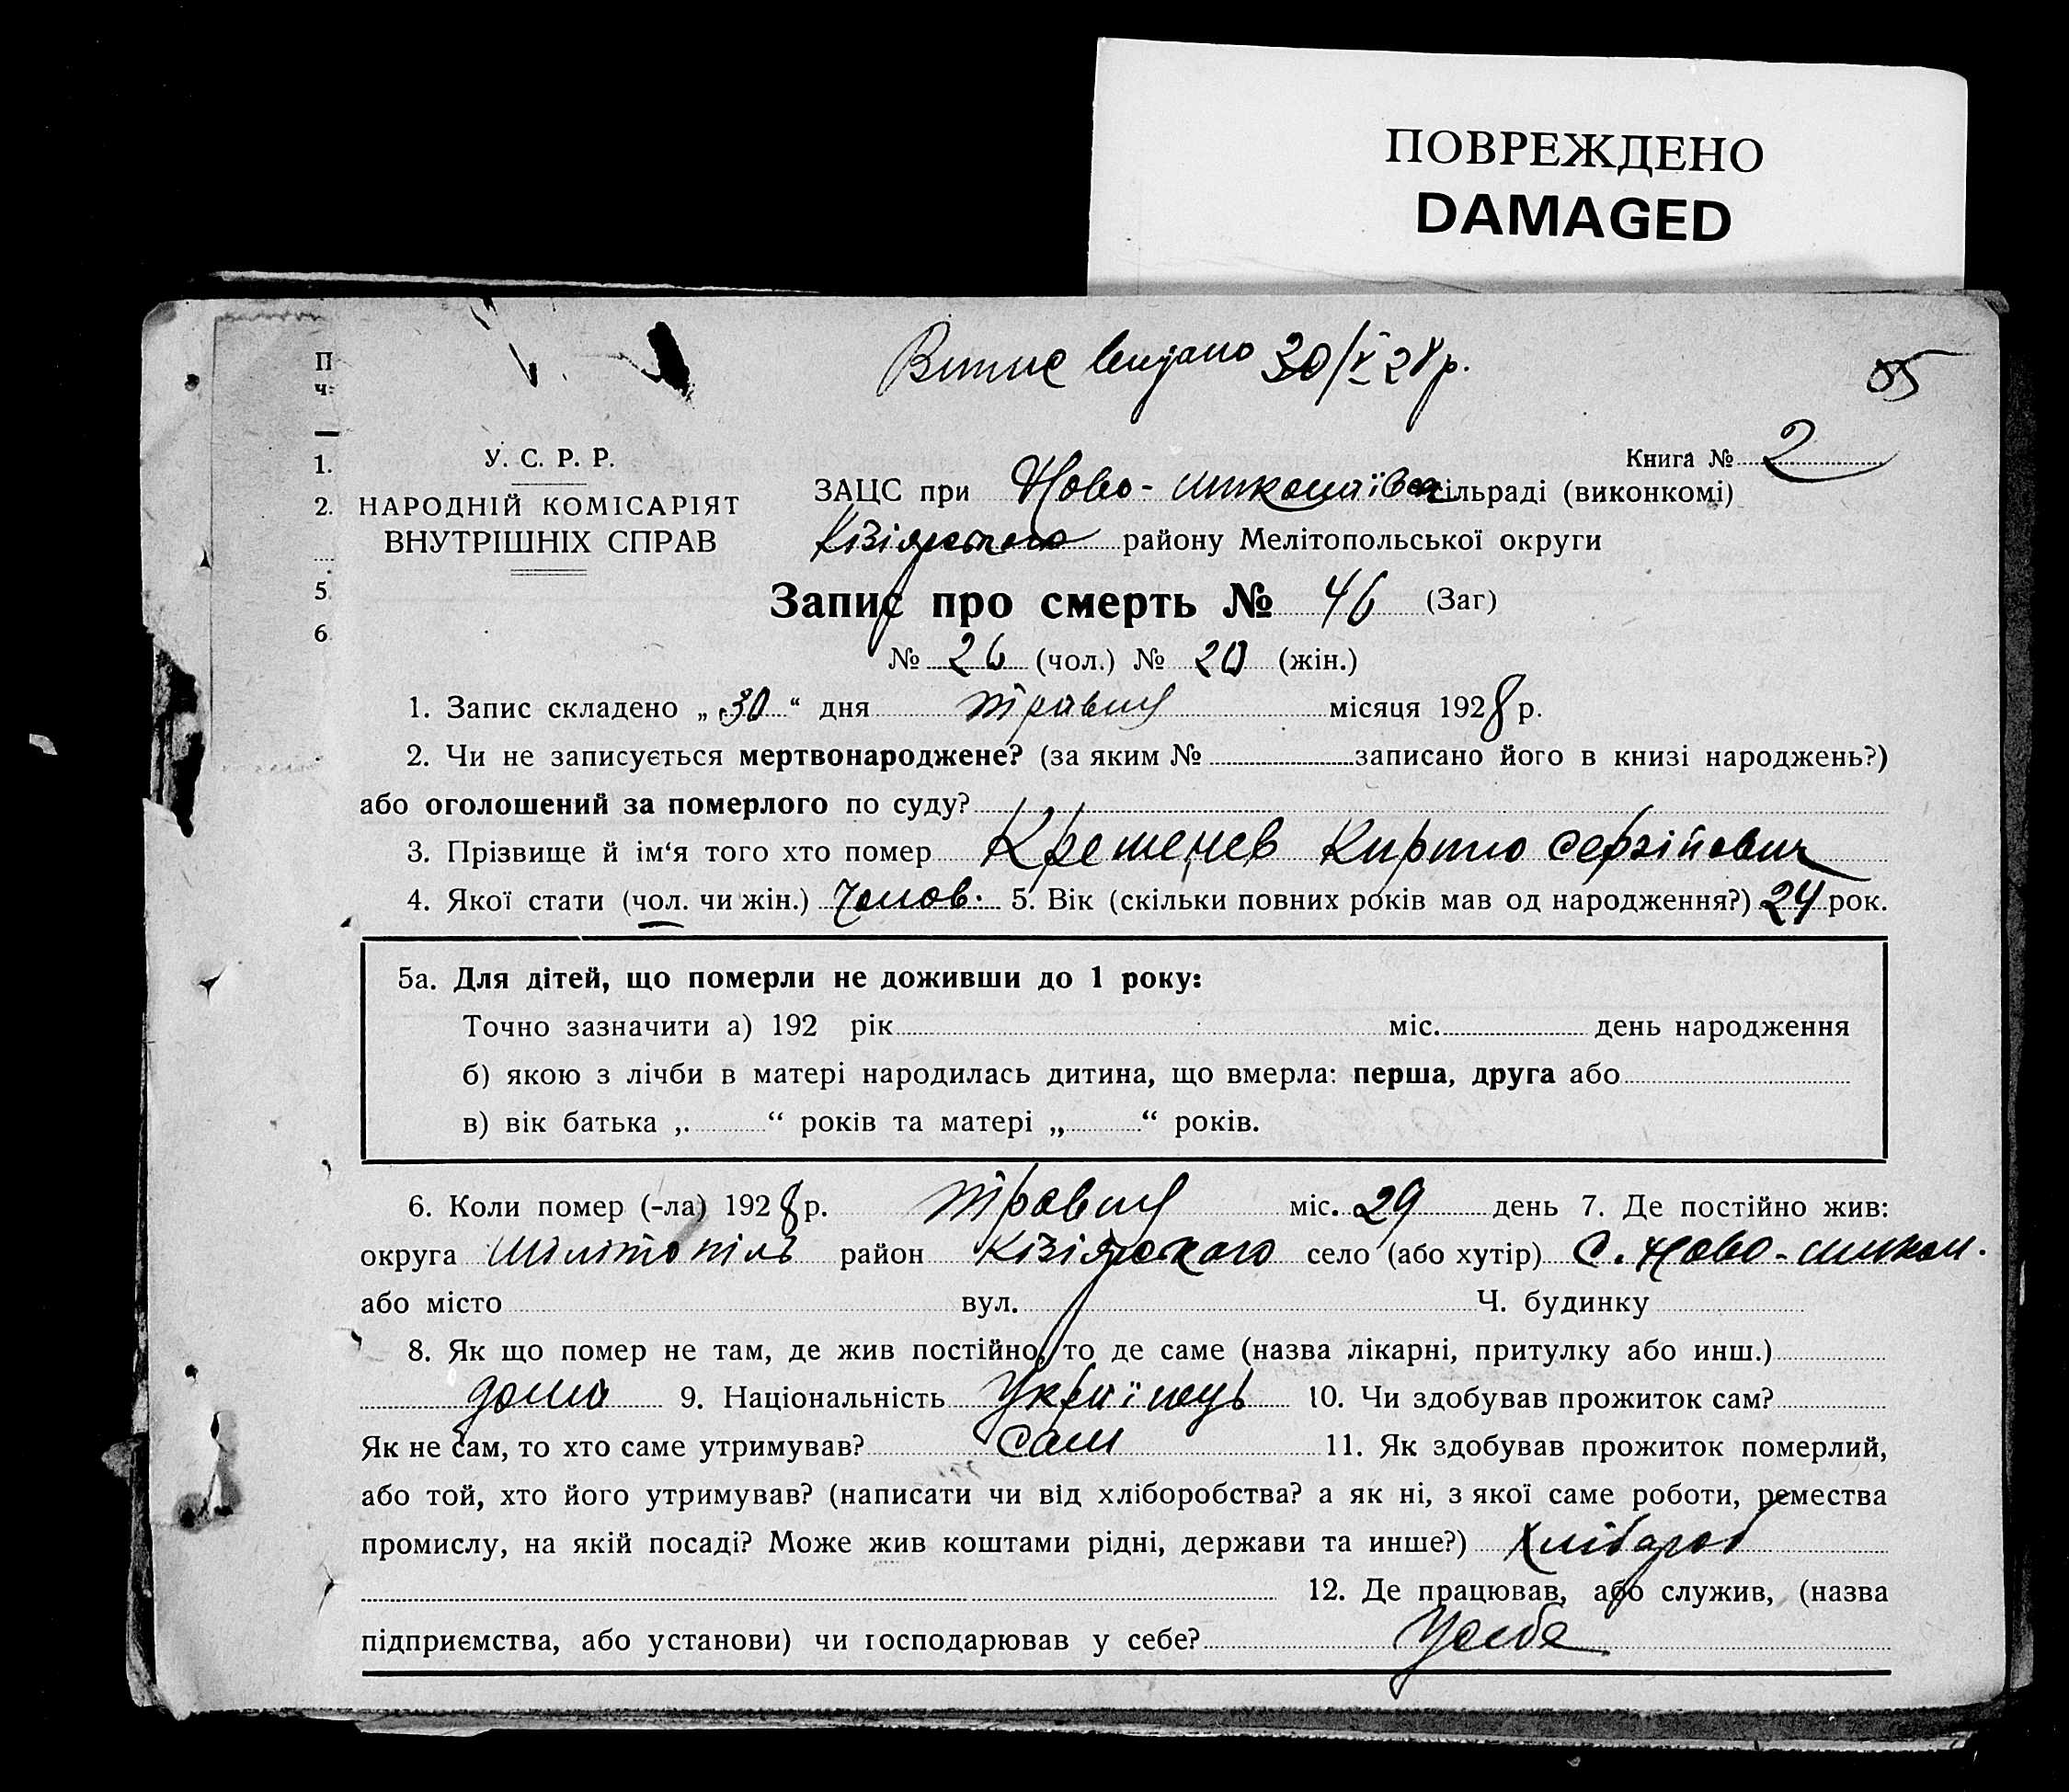 ПОВРЕЖДЕНО
DAMAGED
Випис видано 30/V 28 р.
55
П
ч:
1.
2.
5.
6
У. С. Р. Р.
НАРОДНІЙ КОМІСАРІЯТ
ВНУТРІШНІХ СПРАВ
Книга № 2
ЗАЦС при Ново-миколаївск сільраді (виконкомі)
Кізіярського району Мелітопольської округи
Запис про смерть № 46 (Заг)
№ 26 (чол.) № 20 (жін.)
1. Запис складено „30“ дня травня місяця 1928 р.
2. Чи не записується мертвонароджене? (за яким № записано його в книзі народжень?)
або оголошений за померлого по суду?
3. Прізвище й ім‘я того хто помер Кременев Кирило Сергійович
4. Якої стати (чол. чи жін.) Чолов. 5. Вік (скільки повних років мав од народження?) 24 рок.
5а. Для дітей, що померли не доживши до 1 року:
Точно зазначити а) 192 рік міс. день народження
б) якою з лічби в матері народилась дитина, що вмерла: перша, друга або
в) вік батька „ “ років та матері „ “ років.
6. Коли помер (-ла) 1928 р. травня міс. 29 день 7. Де постійно жив:
округа Мілітопіль район Кізіярского село (або хутір) С. Ново-микол.
або місто вул. Ч. будинку
8. Як що помер не там, де жив постійно, то де саме (назва лікарні, притулку або инш.)
дома 9. Національність Українець 10. Чи здобував прожиток сам?
Як не сам, то хто саме утримував? Сам 11. Як здобував прожиток померлий,
або той, хто його утримував? (написати чи від хліборобства? а як ні, з якої саме роботи, ремества
промислу, на якій посаді? Може жив коштами рідні, держави та инше?) Хлібороб
12. Де працював, або служив, (назва
підприємства, або установи) чи господарював у себе? У себе